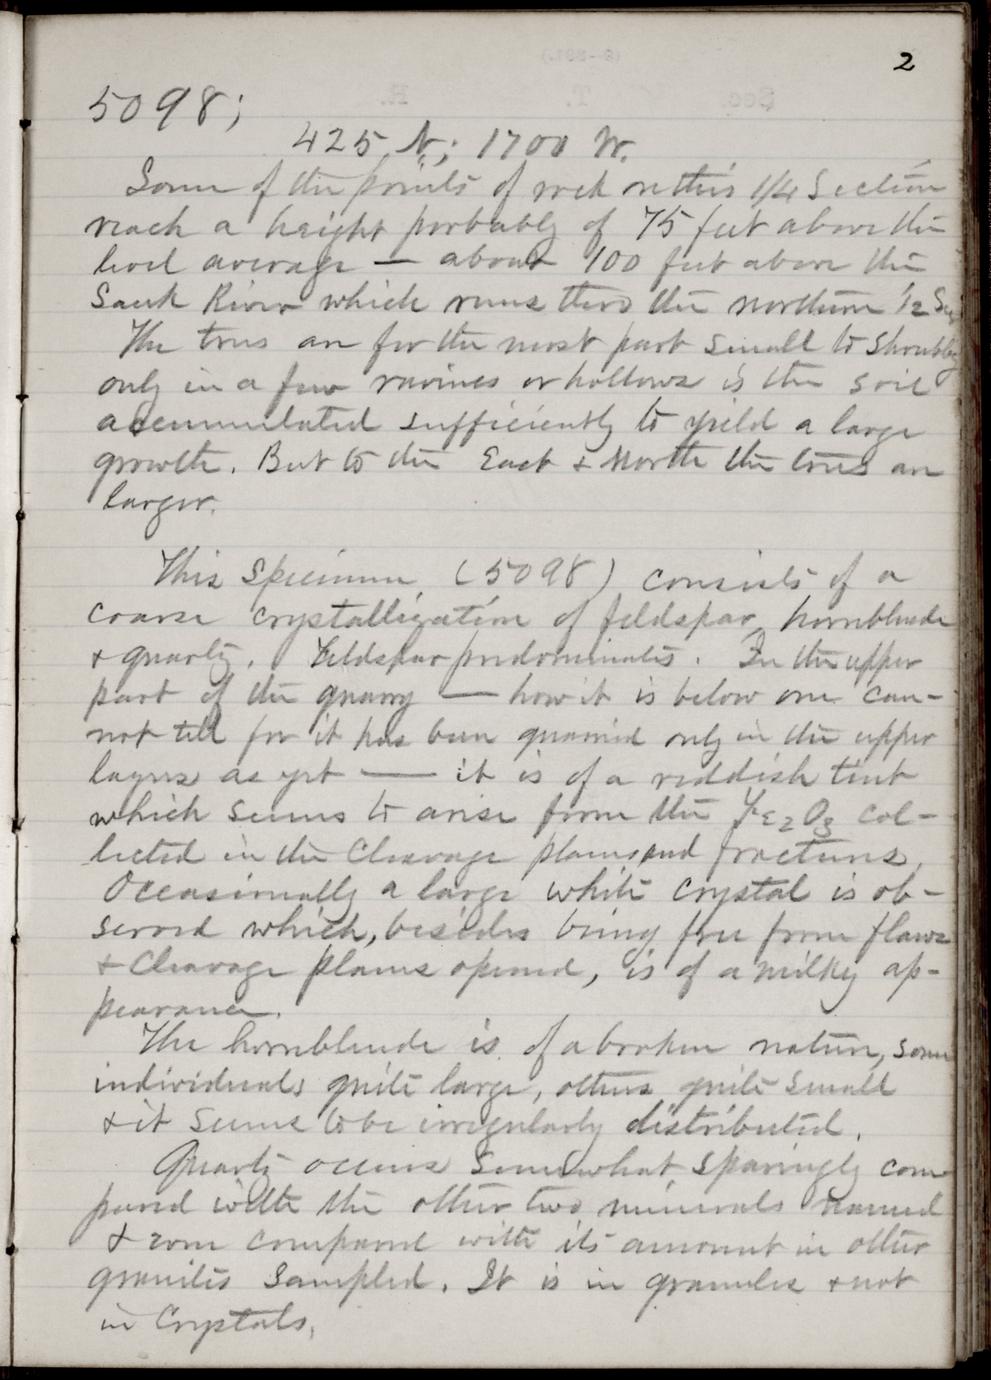 2
5098;
425 N.; 1700 W.
Some of the points of rock on this 1/4 Section
reach a height probably of 75 feet above the
level average — about 100 feet above the
Sauk River which runs thro the northern 1/2 Sec
The trees are for the most part small to shrubby
only in a few ravines or hollows is the soil
accumulated sufficiently to yield a large
growth. But to the East & North the trees are
larger.
This specimen (5098) consists of a
coarse crystallization of feldspar, hornblende
& quartz. Feldspar predominates. In the upper
part of the quarry — how it is below one can-
not tell for it has been quarried only in the upper
layers as yet — it is of a reddish tint
which seems to arise from the Fe2O3 col-
lected in the cleavage planes and fractures.
Occasionally a large white crystal is ob-
served which, besides being free from flaws
& cleavage planes opened, is of a milky ap-
pearance.
The hornblende is of a broken nature, some
individuals quite large, others quite small
& it seems to be irregularly distributed.
Quartz occurs somewhat sparingly com
pared with the other two minerals named
& compared with its amount in other
granites sampled. It is in granules & not
in Crystals.